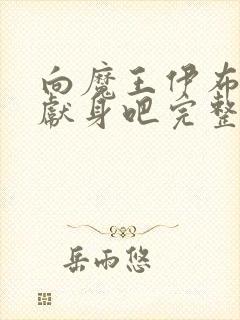 向魔王伊布
献身吧完整
岳雨悠